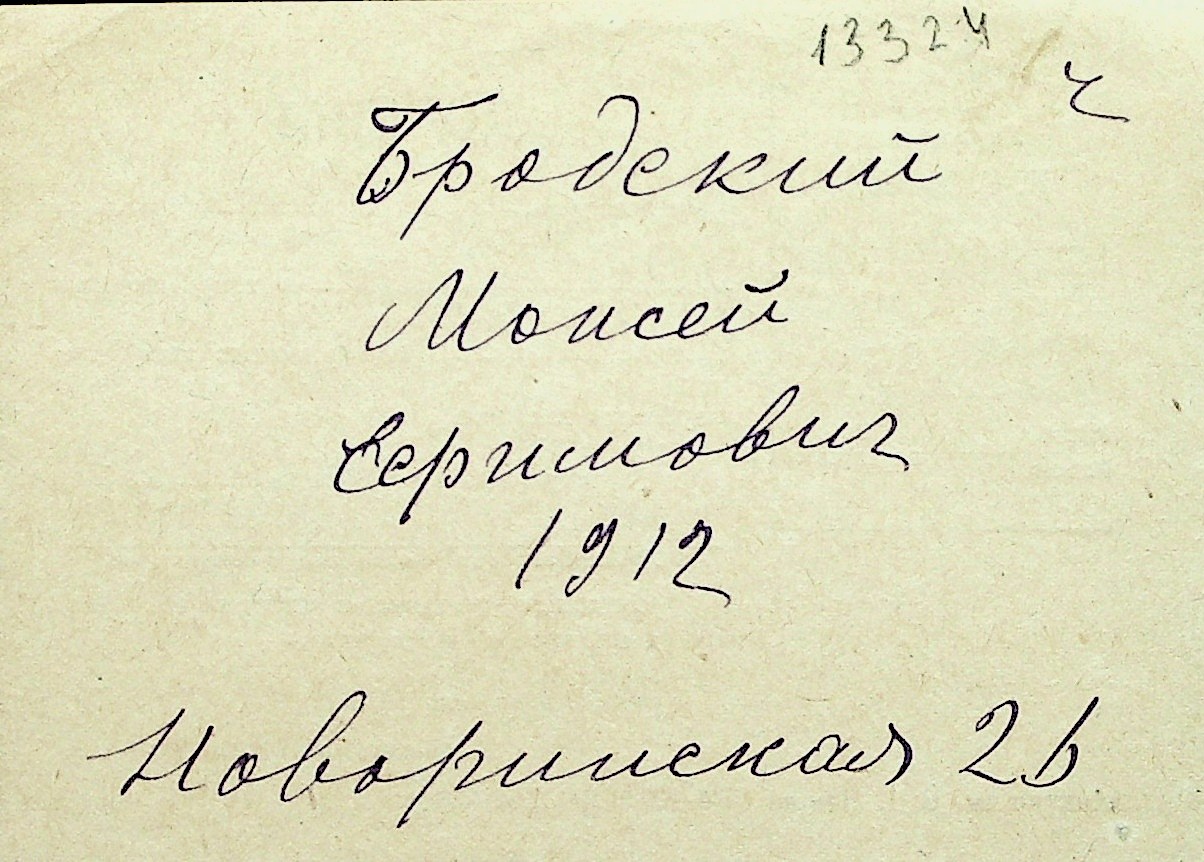 13324
ч
Бродский
Моисей
Серимович
1912
Новоринская 26